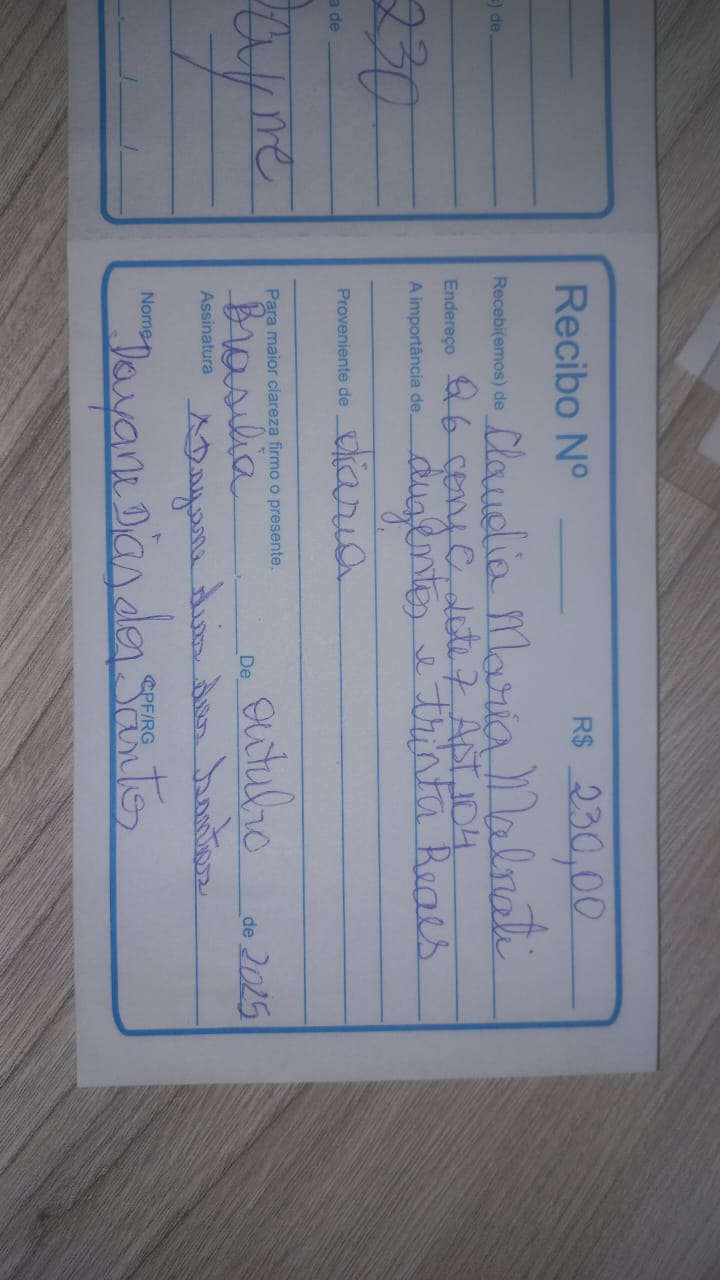 ) de
a de
230
Dayne
/ /
Recibo Nº R$ 230,00
Recebi(emos) de Claudia Maria Malnati
Endereço Q6 conj C lote 7 Apt 104
A importância de duzentos e trinta Reaes
Proveniente de diaria
Para maior clareza firmo o presente.
Brasilia , De outubro de 2025
Assinatura x Dayane dias dos Santos
Nome Dayane Dias dos Santos CPF/RG